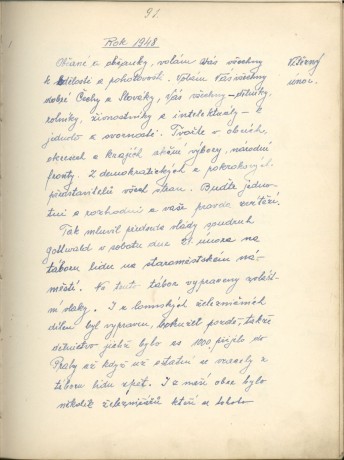 91.
Rok 1948
Občané a občanky, volám Vás všechny
k bdělosti a pohotovosti. Volám Vás všechny
dobré Čechy a Slováky, Vás všechny - dělníky,
rolníky, živnostníky a intelektuály - k
jednotě a svornosti. Tvořte v obcích,
okresech a krajích akční výbory, národní
fronty. Z demokratických a pokrokových
představitelů všech stran. Buďte jednot-
ní a rozhodní a vaše pravda zvítězí.
Tak mluvil předseda vlády soudruh
Gottwald v sobotu dne 21. února na
táboru lidu na staroměstském ná-
městí. Na tento tábor vypraveny zvlášt-
ní vlaky. I z lounských železničních
dílen byl vypraven, bohužel pozdě, takže
dělnictvo jichž bylo as 1000 přijelo do
Prahy až když už ostatní se vraceli z
tábora lidu zpět. I z naší obce bylo
několik železničářů kteří se tohoto
Vítězný
únor.